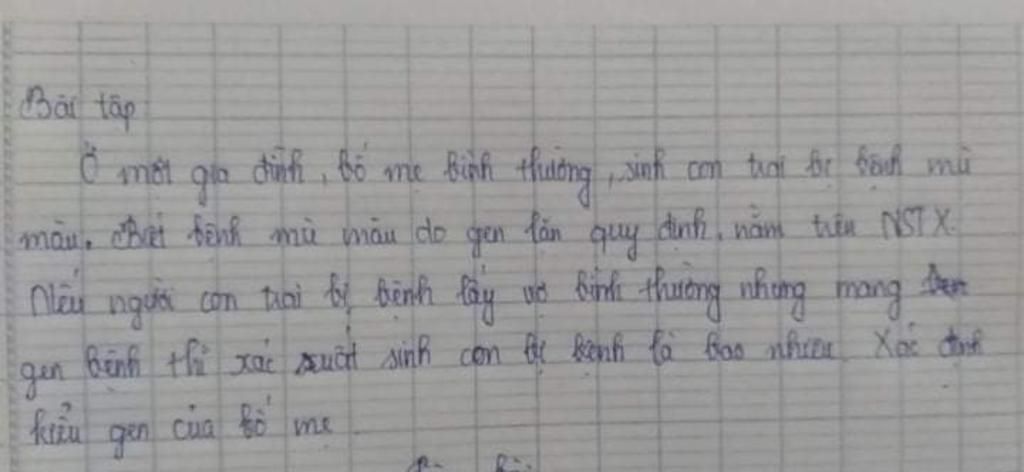 Bài tập
Ở một gia đình, bố mẹ bình thường, sinh con trai bị bệnh mù
màu. Biết bệnh mù màu do gen lặn quy định, nằm trên NST X.
Nếu người con trai bị bệnh lấy vợ bình thường nhưng mang
gen bệnh thì xác suất sinh con bị bệnh là bao nhiêu. Xác định
kiểu gen của bố mẹ